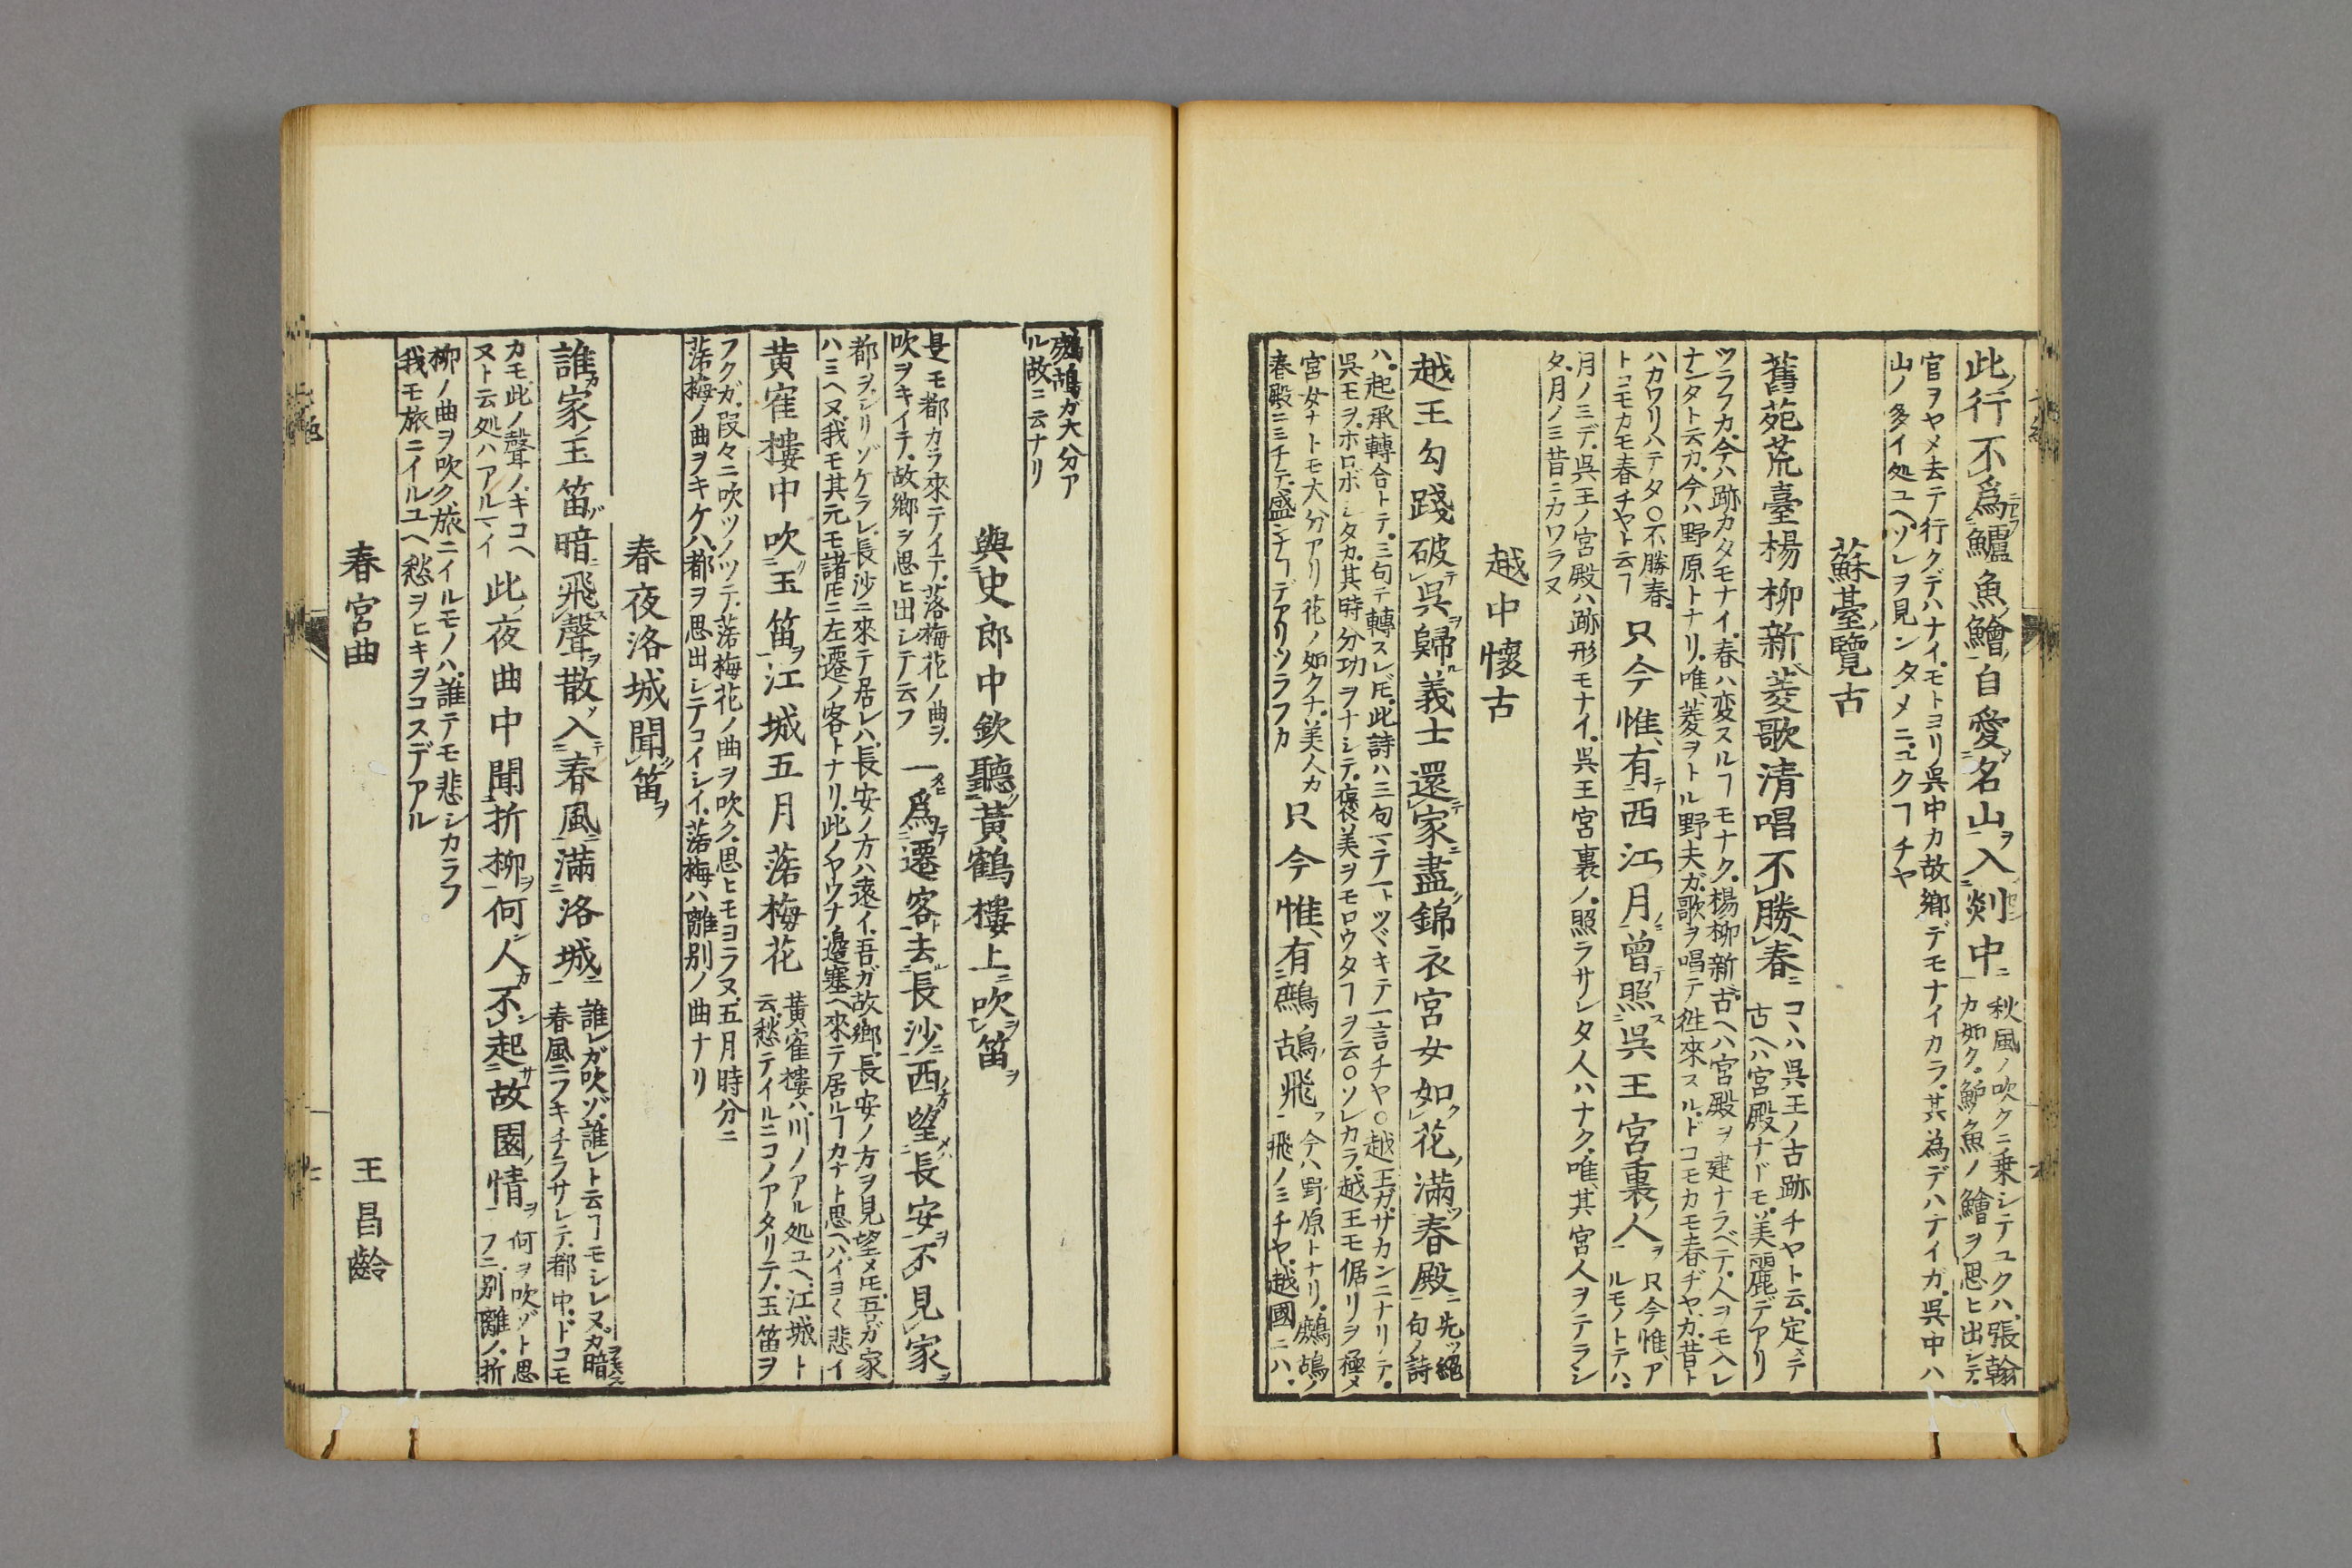 此行不爲鱸魚鱠自愛名山入剡中
秋風ノ吹クニ乗シテユクハ張翰
カ如ク鱸魚ノ鱠ヲ思ヒ出シテ
官ヲヤメ去テ行クデハナイモトヨリ呉中カ故郷デモナイカラ其為デハナイガ呉中ハ
山ノ多イ処ユヘソレヲ見ンタメニユクヿチヤ
蘇臺覽古
舊苑荒臺楊柳新菱歌清唱不勝春
コヽハ呉王ノ古跡チヤト云定メテ
古ヘハ宮殿ナドモ美麗デアリ
ツラフカ今ハ跡カタモナイ春ハ変スルヿモナク楊柳新古ヘハ宮殿ヲ建ナラベテ人ヲモ入レ
ナンタト云カ今ハ野原トナリ唯菱ヲトル野夫ガ歌ヲ唱テ徃來スルドコモカモ春ヂヤカ昔ト
ハカワリハテタ○不勝春
トコモカモ春チヤト云ヿ
只今惟有西江月曾照呉王宮裏人
只今惟ア
ルモノトテハ
月ノミデ呉王ノ宮殿ハ跡形モナイ呉王宮裏ノ照ラサレタ人ハナク唯其宮人ヲテラシ
タ月ノミ昔ニカワラヌ
越中懷古
越王勾踐破呉歸義士還家盡錦衣宮女如花滿春殿
先ツ絶
句ノ詩
ハ起承轉合トテ三句テ轉スレ𪜈此詩ハ三句マテ一トツヾキテ一言チヤ○越王ガサカンニナリテ
呉王ヲホロボシタカ其時分功ヲナシテ褒美ヲモロウタヿヲ云○ソレカラ越王モ倨リヲ極メ
宮女ナトモ大分アリ花ノ如クナ美人カ
春殿ニミチテ盛ンナヿデアリツラフカ
只今惟有鷓鴣飛
今ハ野原トナリ鷓鴣ノ
飛ノミチヤ越國ニハ
鷓鴣ガ大分ア
ル故ニ云ナリ
與史郎中欽聽黃鶴樓上吹笛
是モ都カラ來テイテ落梅花ノ曲ヲ
吹ヲキイテ故郷ヲ思ヒ出シテ云フ
一爲遷客去長沙西望長安不見家
都ヲシリゾケラレ長沙ニ來テ居レハ長安ノ方ハ遠イ吾ガ故郷長安ノ方ヲ見望メ𪜈吾ガ家
ハミヘヌ我モ其元モ諸𪜈ニ左遷ノ客トナリ此ノヤウナ邉塞ヘ來テ居ルヿカナト思ヘハイヨ〱悲イ
黄隺樓中吹玉笛江城五月落梅花
黄隺樓ハ川ノアル処ユヘ江城ト
云愁テイルニコノアタリテ玉笛ヲ
フクガ段々ニ吹ツノツテ落梅花ノ曲ヲ吹ク思ヒモヨラヌ五月時分ニ
落梅ノ曲ヲキケハ都ヲ思出シテコイシイ落梅ハ離別ノ曲ナリ
春夜洛城聞笛
誰家玉笛暗飛聲散入春風滿洛城
誰レガ吹ゾ誰レト云ヿモシレヌカ暗
春風ニフキチラサレテ都中ドコモ
カモ此ノ聲ノキコヘ
ヌト云処ハアルマイ
此夜曲中聞折柳何人不起故園情
何ヲ吹ゾト思
フニ別離ノ折
柳ノ曲ヲ吹ク旅ニイルモノハ誰テモ悲シカラフ
我モ旅ニイルユヘ愁ヲヒキヲコスデアル
春宮曲 王昌齡